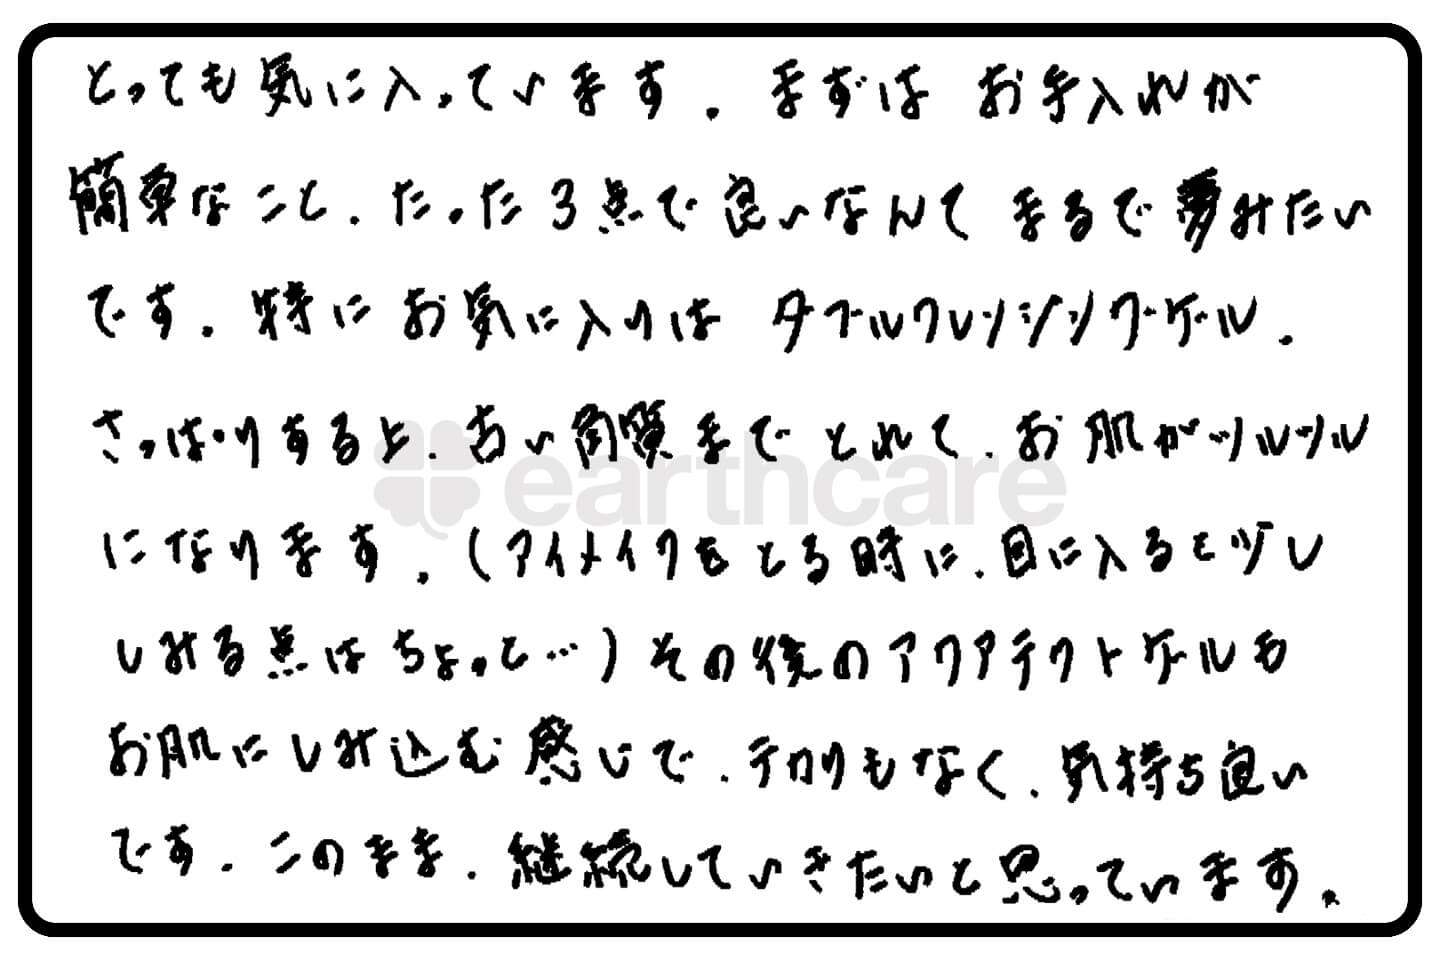 とっても気に入っています。まずは お手入れが
簡単なこと、たった3点で良いなんて まるで夢みたい
です。特に お気に入りは ダブルクレンジングゲル。
さっぱりすると、古い角質まで とれて、お肌がツルツル
になります。(アイメイクをとる時に、目に入ると少し
しみる点は ちょっと…)その後のアクアテクトゲルも
お肌にしみ込む感じで、テカりもなく、気持ち良い
です。このまま、継続していきたいと思っています。
earthcare